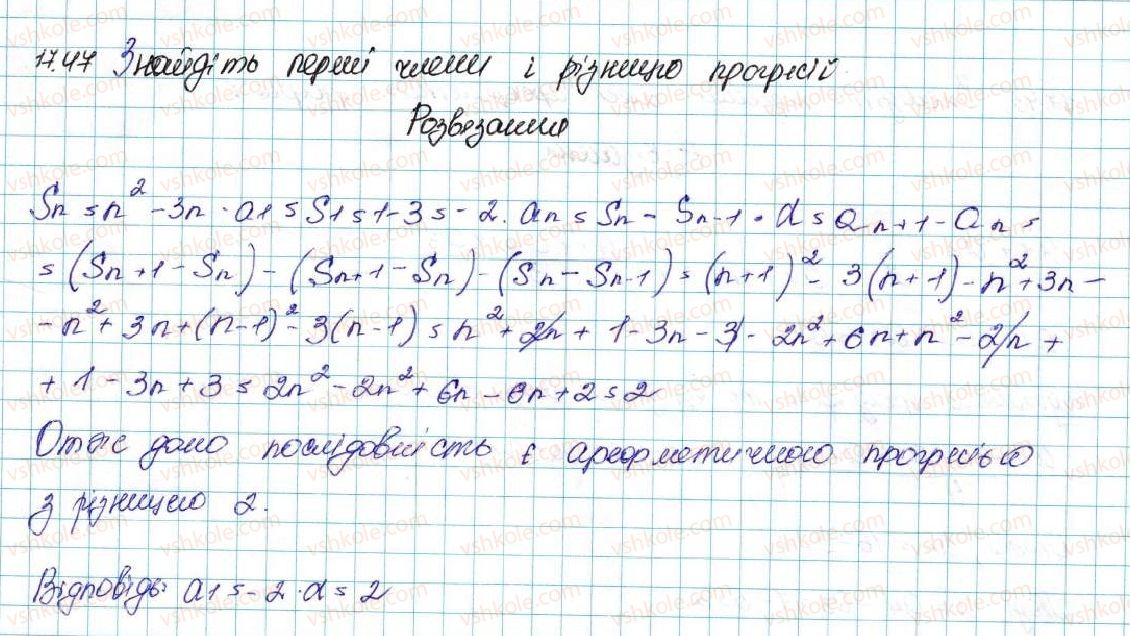 17.47 Знайдіть перші члени і різницю прогресій
Розвезання
Sn = n² - 3n · a1 = S1 = 1 - 3 = -2. an = Sn - Sn-1 · d = an+1 - an =
= (Sn+1 - Sn) - (Sn+1 - Sn) - (Sn - Sn-1) = (n+1)² - 3(n+1) - n² + 3n -
- n² + 3n + (n-1)² - 3(n-1) = n² + 2n + 1 - 3n - 3 - 2n² + 6n + n² - 2n +
+ 1 - 3n + 3 = 2n² - 2n² + 6n - 6n + 2 = 2
Отже дано послідовність є арефметичного прогресівю
з різницию 2.
Відповідь: a1 = -2 · d = 2